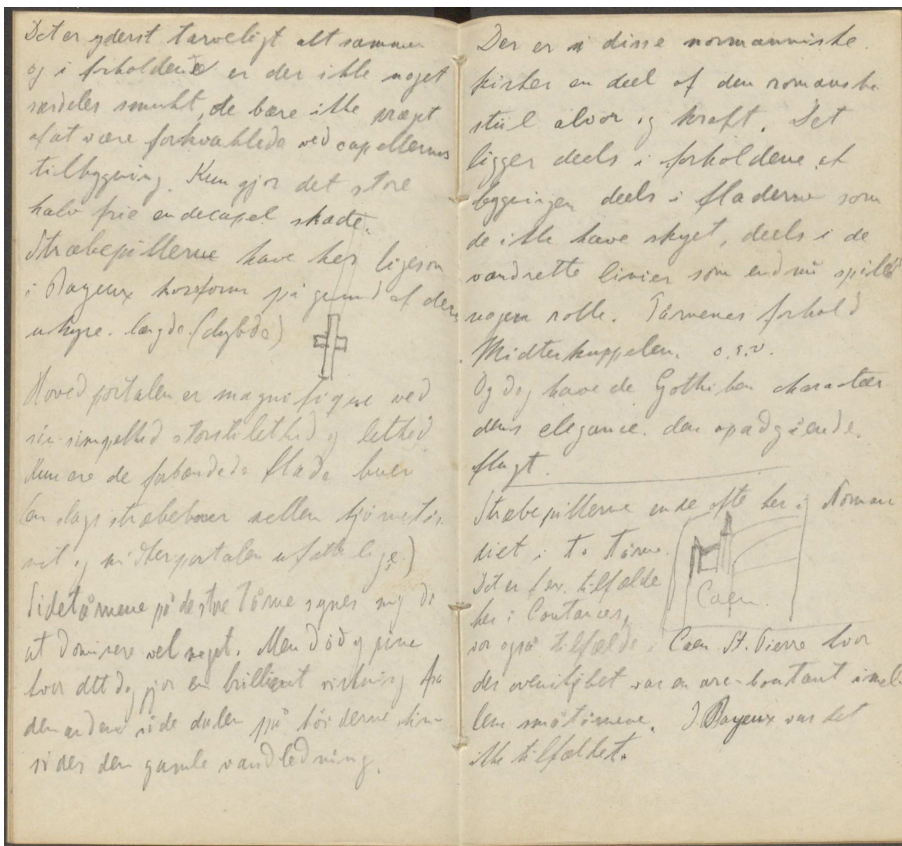 Det er yderst tarveligt alt sammen
og i forholdene er der ikke noget
særdeles smukt, de bære ikke præget
af at være forkvaklede ved capellernes
tilbygning. Kun gjør det store
halv frie endecapel skade.
Stræbepillerne have her ligesom
i Bayeux korsform på grund af den
uhyre længde (dybde)
Hovedportalen er magnifique ved
sin simpelhed storstilethed og lethed
Kun ere de flade buer
(en slags stræbebuer mellem hjørnetår
net og midterportalen ufattelige)
Sidetårnene på de store tårne synes mig
at dominere vel meget. Men
hvor det dog gjør en brilliant virkning fra
den anden side dalen på høiderne
den gamle vandledning.
Der er i disse normanniske
kirker en deel af den romanske
stiil alvor og kraft. Det
ligger deels i forholdene af
bygningen deels i fladerne som
de ikke have skyet, deels i de
vandrette linier som endnu spille
nogen rolle. Tårnenes forhold
Midterkuppelen. o.s.v.
Og dog have de Gothiken charactær
dens elegance. den opadgående
flugt.
Stræbepillerne ende ofte her i Norman
diet i to tårne.
Det er tilfælde
her i Coutances,
Caen
var også tilfælde i Caen St. Pierre hvor
der ovenikjøbet var en arc-boutant imel
lem småtårnene. I Bayeux var det
ikke tilfældet.